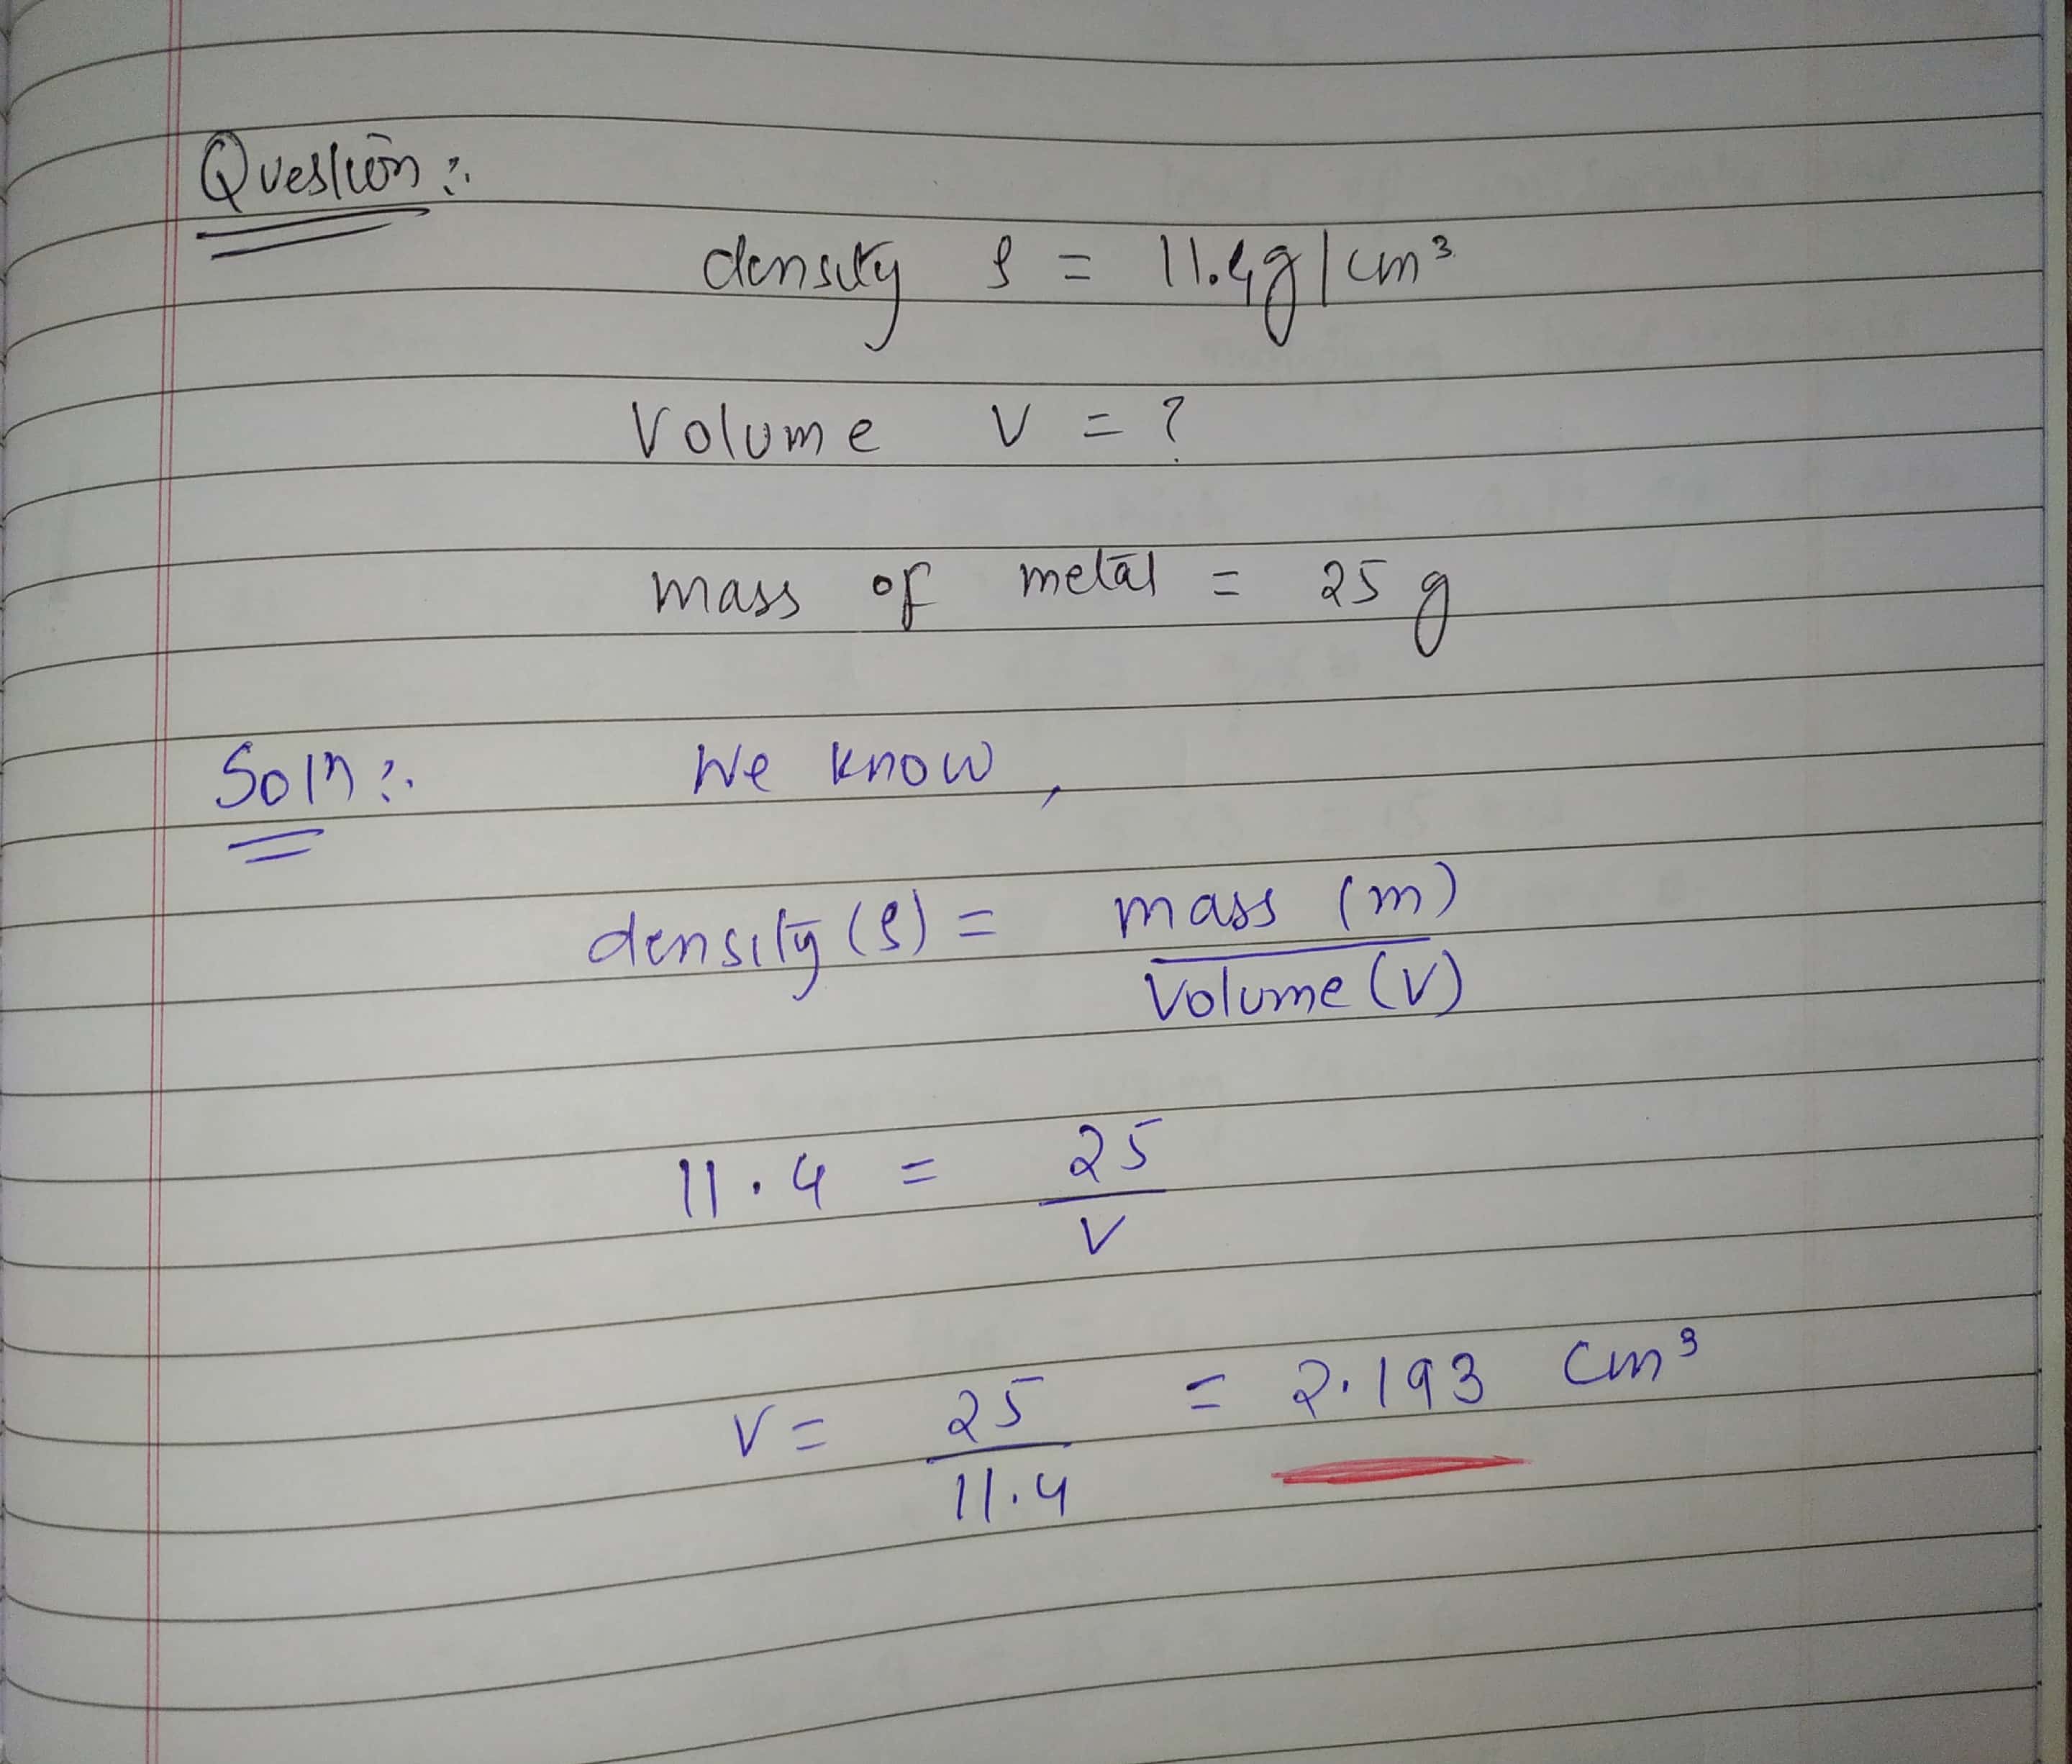 Question :.
density ρ = 11.4g/cm³
Volume V = ?
mass of metal = 25 g
Soln :. We know,
density (ρ) = mass (m)
Volume (V)
11.4 = 25
V
V = 25 = 2.193 cm³
11.4